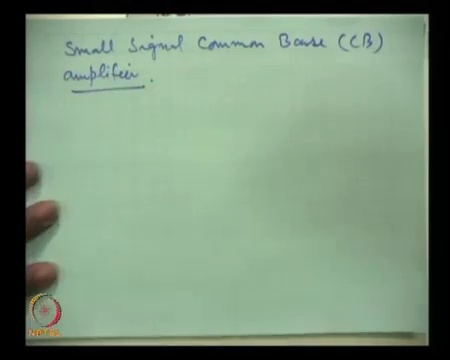 Small Signal Common Base (CB)
amplifier.
NPTEL